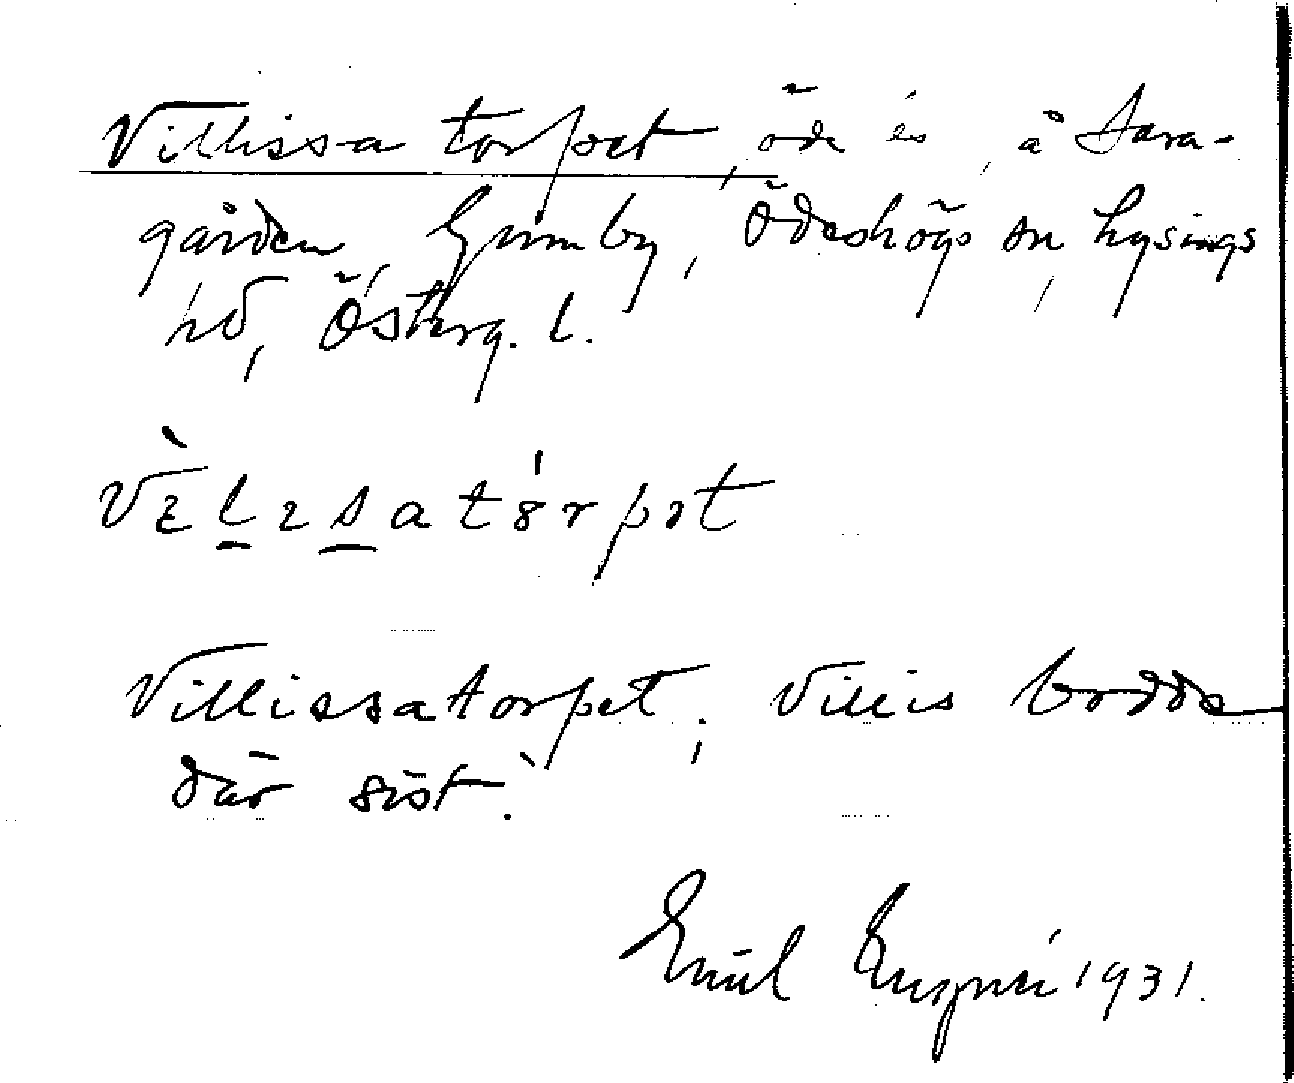 Villissa torpet, öde äs, å Sara-
gården, Gumby, Ödeshögs sn, Lysings
hd, Österg. l.
Vèlısatörpət
Villissatorpet, Villis bodde
där sist.
Emil 1931.